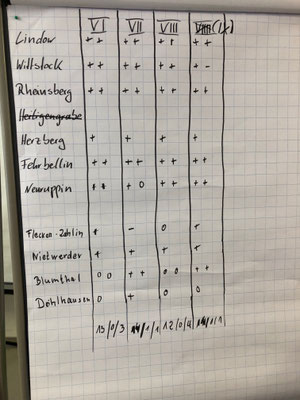 VI VII VIII VIIII (IX)
Lindow ++ ++ ++ ++
Wittstock ++ ++ ++ +-
Rheinsberg ++ ++ ++ ++
Heiligengrabe
Herzberg + + + +
Fehrbellin ++ ++ ++ ++
Neuruppin ++ +o ++ ++
Flecken-Zechlin + - o +
Nietwerder + + + +
Blumthal oo ++ oo ++
Dohlhausen o + o o
13/0/3 /1/1 12/0/4 /0/1